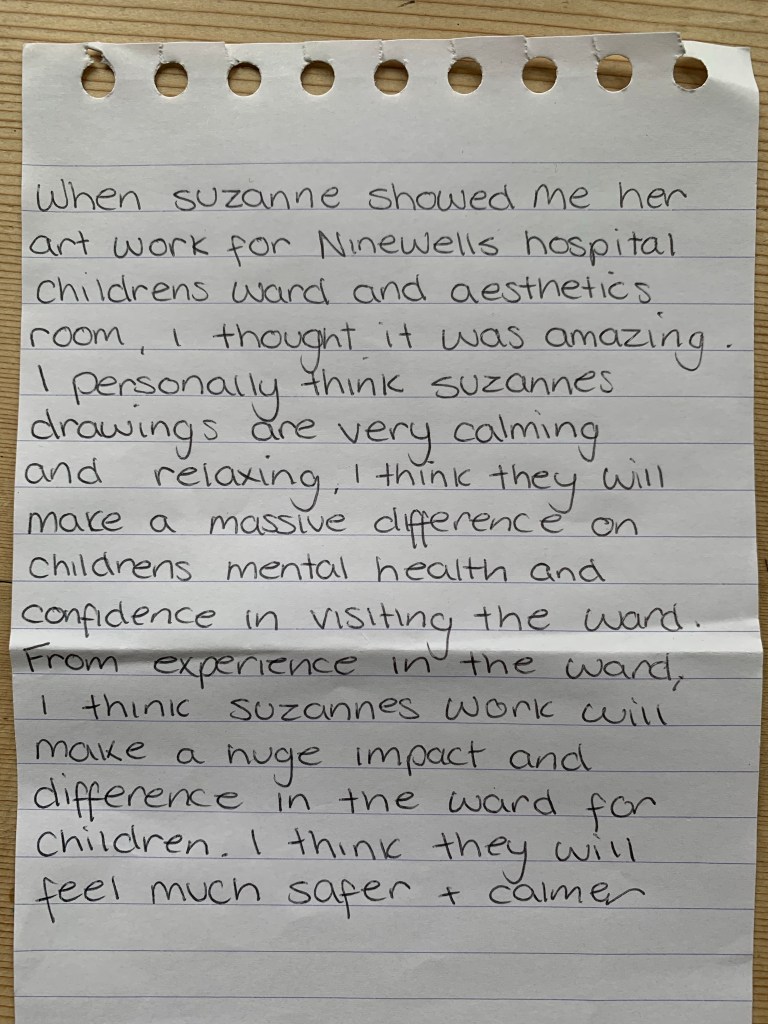 When suzanne showed me her
art work for Ninewells hospital
childrens ward and aesthetics
room, I thought it was amazing.
I personally think suzannes
drawings are very calming
and relaxing, I think they will
make a massive difference on
childrens mental health and
confidence in visiting the ward.
From experience in the ward,
I think suzannes work will
make a huge impact and
difference in the ward for
children. I think they will
feel much safer + calmer